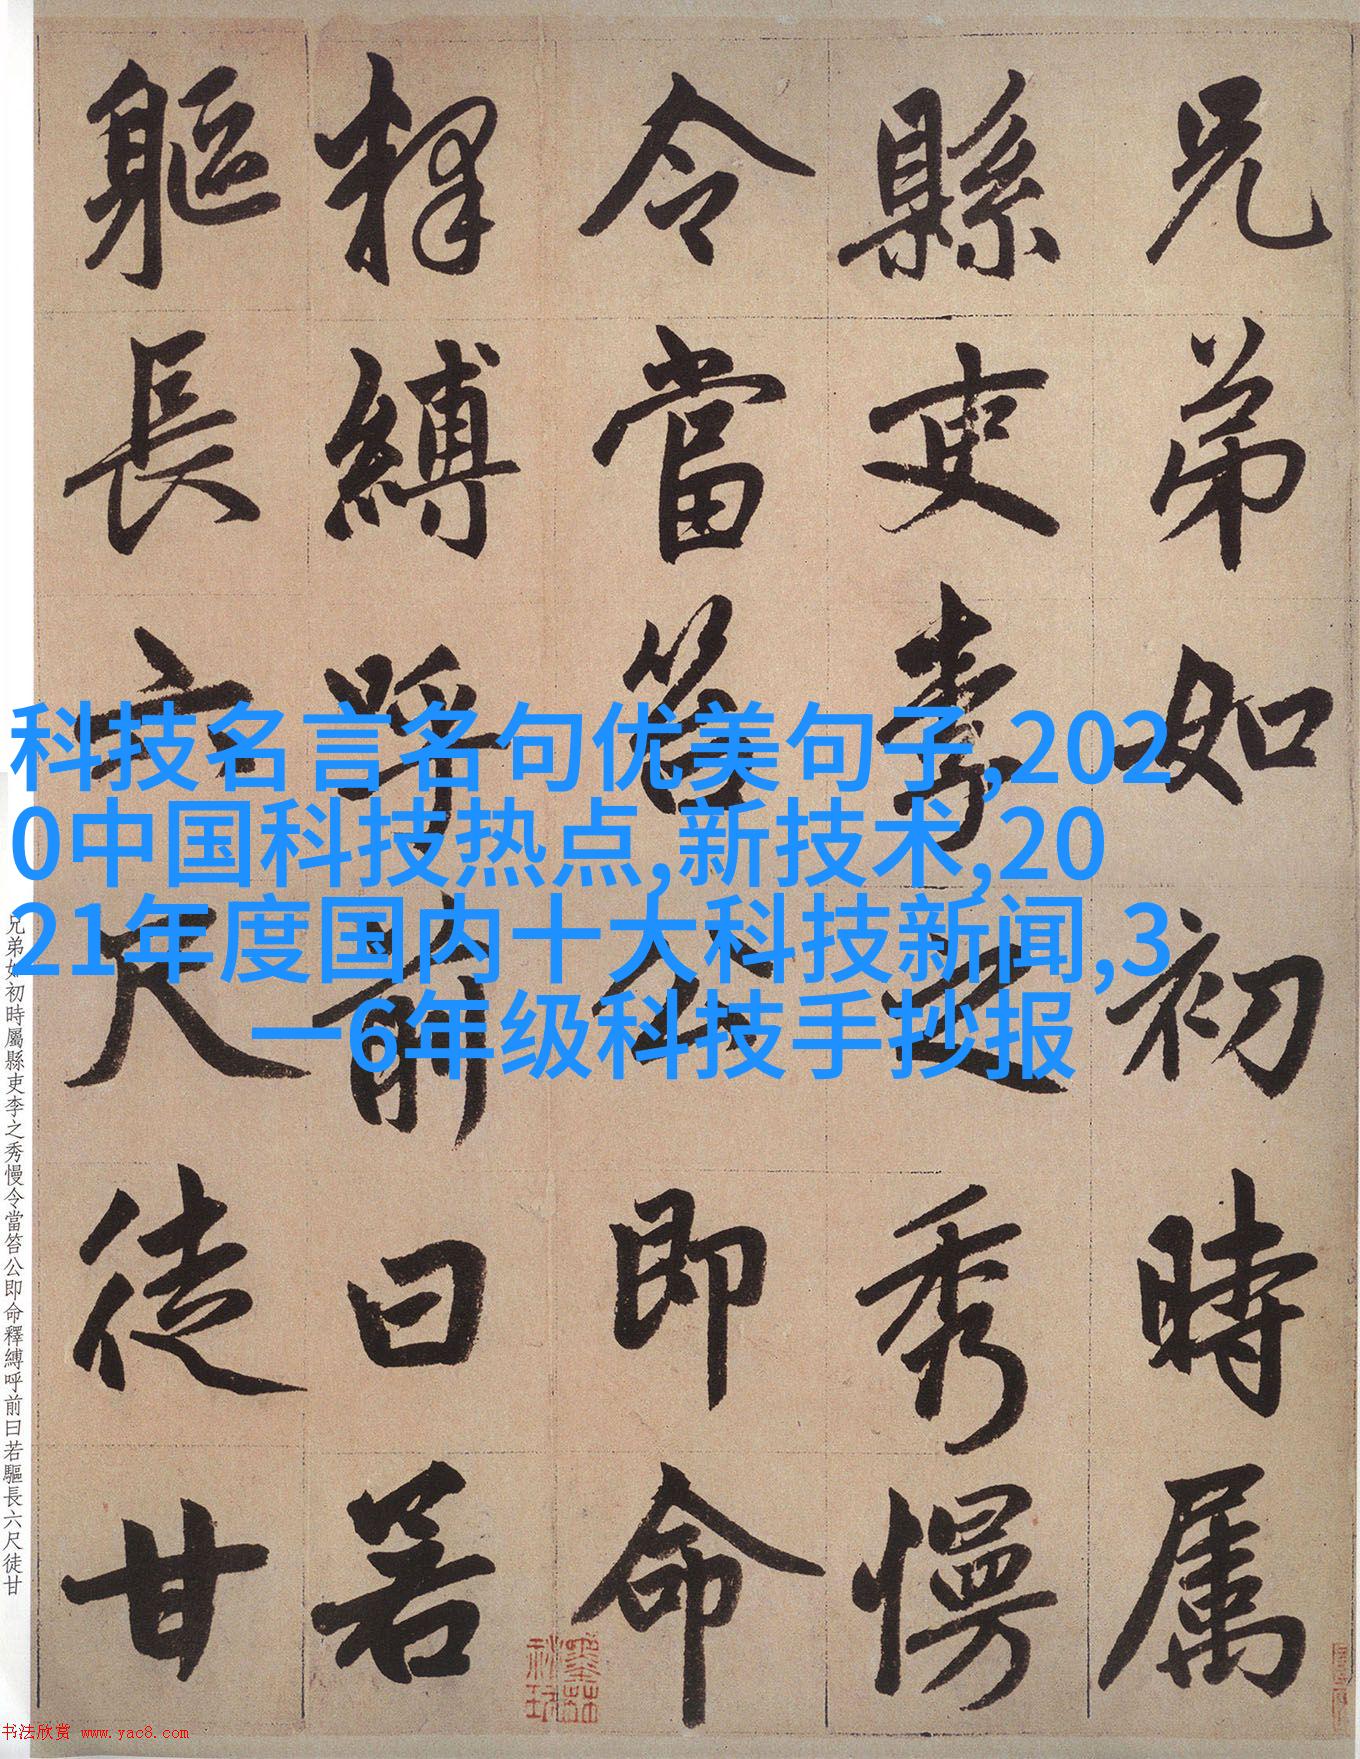 兄弟如初時属
縣吏李之秀慢
令當笞公即命
釋縛呼前曰若
軀長六尺徒甘
科技名言名句优美句子,202
0中国科技热点,新技术,20
21年度国内十大科技新闻,3
一6年级科技手抄报
兄弟如初時屬縣吏李之秀慢令當笞公即命釋縛呼前曰若軀長六尺徒甘
书法欣赏 www.yac8.com